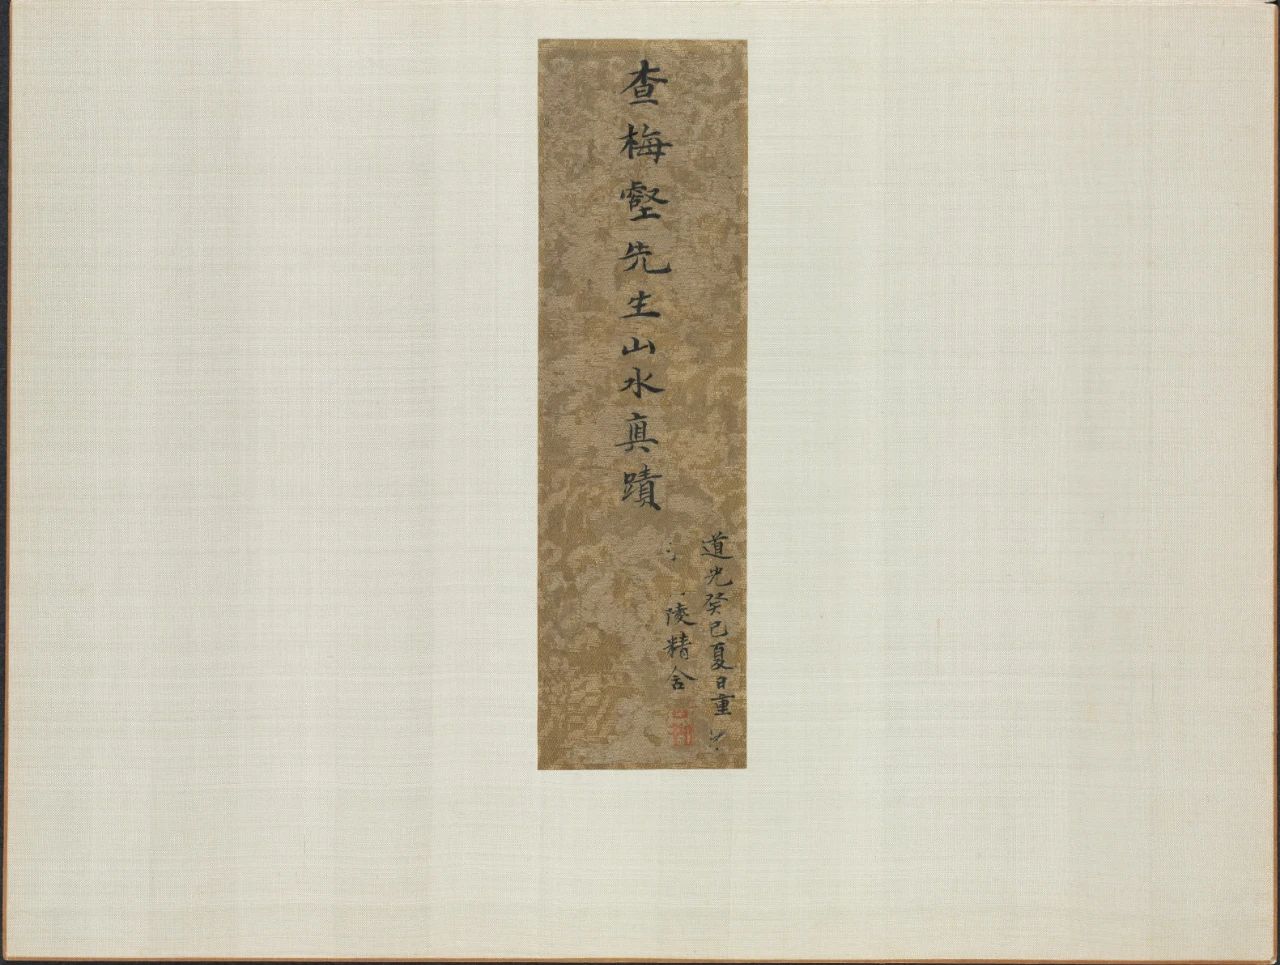 查梅壑先生山水真蹟
道光癸巳夏日重
陵精舍